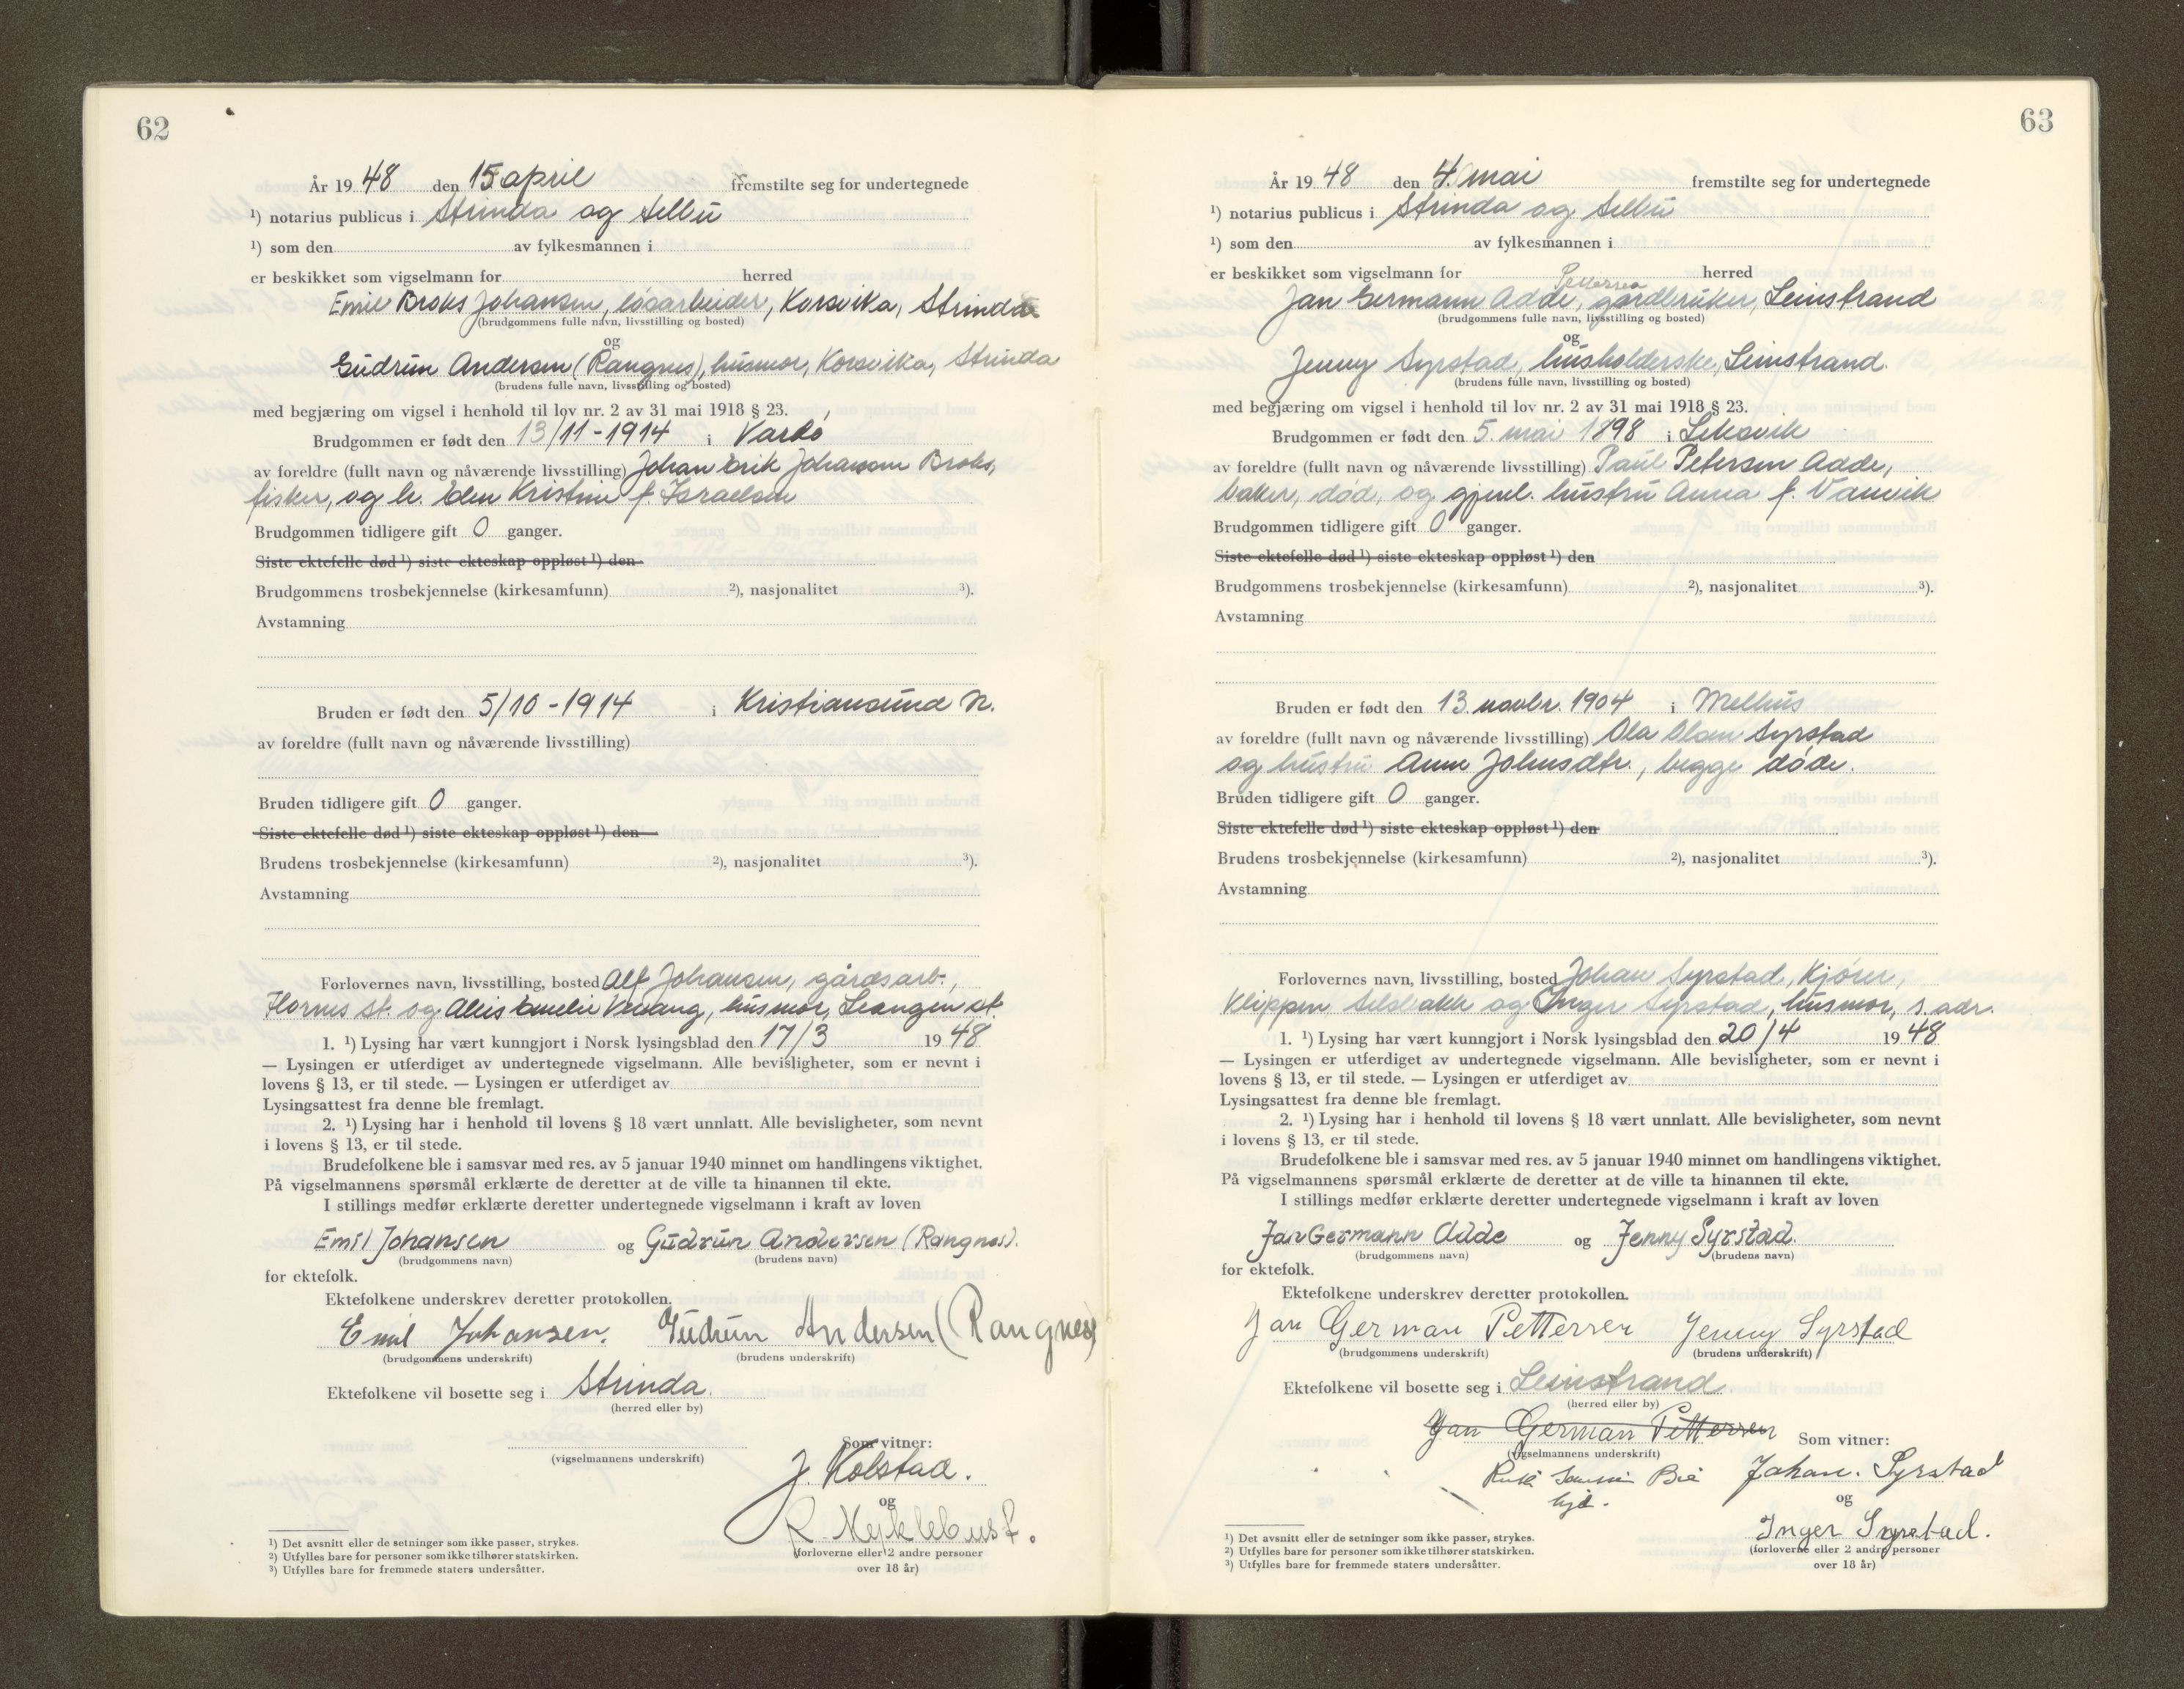 62
År 19 48 den 15 april fremstilte seg for undertegnede
¹) notarius publicus i Strinda og Selbu
¹) som den av fylkesmannen i
er beskikket som vigselmann for herred
Emil Broks Johansen, løsarbeider, Korsvika, Strinda
(brudgommens fulle navn, livsstilling og bosted)
og
Gudrun Andersen (Rangnes), husmor, Korsvika, Strinda
(brudens fulle navn, livsstilling og bosted)
med begjæring om vigsel i henhold til lov nr. 2 av 31 mai 1918 § 23.
Brudgommen er født den 13/11-1914 i Vardø
av foreldre (fullt navn og nåværende livsstilling) Johan Erik Johansen Broks,
fisker, og h. Elen Kristine f. Israelsen
Brudgommen tidligere gift 0 ganger.
Siste ektefelle død ¹) siste ekteskap oppløst ¹) den
Brudgommens trosbekjennelse (kirkesamfunn) ²), nasjonalitet ³).
Avstamning
Bruden er født den 5/10-1914 i Kristiansund N.
av foreldre (fullt navn og nåværende livsstilling)
Bruden tidligere gift 0 ganger.
Siste ektefelle død ¹) siste ekteskap oppløst ¹) den
Brudens trosbekjennelse (kirkesamfunn) ²), nasjonalitet ³).
Avstamning
Forlovernes navn, livsstilling, bosted Alf Johansen, gårdsarb.,
st. og Emelie husmor, Leangen st.
1. ¹) Lysing har vært kunngjort i Norsk lysingsblad den 17/3 19 48
— Lysingen er utferdiget av undertegnede vigselmann. Alle bevisligheter, som er nevnt i
lovens § 13, er til stede. — Lysingen er utferdiget av
Lysingsattest fra denne ble fremlagt.
2. ¹) Lysing har i henhold til lovens § 18 vært unnlatt. Alle bevisligheter, som nevnt
i lovens § 13, er til stede.
Brudefolkene ble i samsvar med res. av 5 januar 1940 minnet om handlingens viktighet.
På vigselmannens spørsmål erklærte de deretter at de ville ta hinannen til ekte.
I stillings medfør erklærte deretter undertegnede vigselmann i kraft av loven
Emil Johansen og Gudrun Andersen (Rangnes).
(brudgommens navn) (brudens navn)
for ektefolk.
Ektefolkene underskrev deretter protokollen.
Emil Johansen. Gudrun Andersen (Rangnes)
(brudgommens underskrift) (brudens underskrift)
Ektefolkene vil bosette seg i Strinda.
(herred eller by)
Som vitner:
(vigselmannens underskrift)
J. Kolstad.
og
R. Myklebust.
(forloverne eller 2 andre personer
over 18 år)
¹) Det avsnitt eller de setninger som ikke passer, strykes.
²) Utfylles bare for personer som ikke tilhører statskirken.
³) Utfylles bare for fremmede staters undersåtter.
63
År 19 48 den 4. mai fremstilte seg for undertegnede
¹) notarius publicus i Strinda og Selbu
¹) som den av fylkesmannen i
er beskikket som vigselmann for herred
Pettersen
Jan Germann Adde, gårdbruker, Leinstrand
(brudgommens fulle navn, livsstilling og bosted)
og
Jenny Syrstad, husholderske, Leinstrand.
(brudens fulle navn, livsstilling og bosted)
med begjæring om vigsel i henhold til lov nr. 2 av 31 mai 1918 § 23.
Brudgommen er født den 5. mai 1898 i Leksvik
av foreldre (fullt navn og nåværende livsstilling) Paul Petersen Adde,
baker, død, og gjenl. hustru Anna f. Vanvik
Brudgommen tidligere gift 0 ganger.
Siste ektefelle død ¹) siste ekteskap oppløst ¹) den
Brudgommens trosbekjennelse (kirkesamfunn) ²), nasjonalitet ³).
Avstamning
Bruden er født den 13. novbr. 1904 i Melhus
av foreldre (fullt navn og nåværende livsstilling) Ola Olsen Syrstad
og hustru Anne Johnsdtr., begge døde.
Bruden tidligere gift 0 ganger.
Siste ektefelle død ¹) siste ekteskap oppløst ¹) den
Brudens trosbekjennelse (kirkesamfunn) ²), nasjonalitet ³).
Avstamning
Forlovernes navn, livsstilling, bosted Johan Syrstad, kjører,
Klippen Selsbakk og Inger Syrstad, husmor, s. adr.
1. ¹) Lysing har vært kunngjort i Norsk lysingsblad den 20/4 19 48
— Lysingen er utferdiget av undertegnede vigselmann. Alle bevisligheter, som er nevnt i
lovens § 13, er til stede. — Lysingen er utferdiget av
Lysingsattest fra denne ble fremlagt.
2. ¹) Lysing har i henhold til lovens § 18 vært unnlatt. Alle bevisligheter, som nevnt
i lovens § 13, er til stede.
Brudefolkene ble i samsvar med res. av 5 januar 1940 minnet om handlingens viktighet.
På vigselmannens spørsmål erklærte de deretter at de ville ta hinannen til ekte.
I stillings medfør erklærte deretter undertegnede vigselmann i kraft av loven
Jan Germann Adde og Jenny Syrstad.
(brudgommens navn) (brudens navn)
for ektefolk.
Ektefolkene underskrev deretter protokollen.
Jan German Petterren Jenny Syrstad
(brudgommens underskrift) (brudens underskrift)
Ektefolkene vil bosette seg i Leinstrand.
(herred eller by)
Jan German Petterren Som vitner:
(vigselmannens underskrift)
Johan. Syrstad
og
Inger Syrstad.
(forloverne eller 2 andre personer
over 18 år)
¹) Det avsnitt eller de setninger som ikke passer, strykes.
²) Utfylles bare for personer som ikke tilhører statskirken.
³) Utfylles bare for fremmede staters undersåtter.